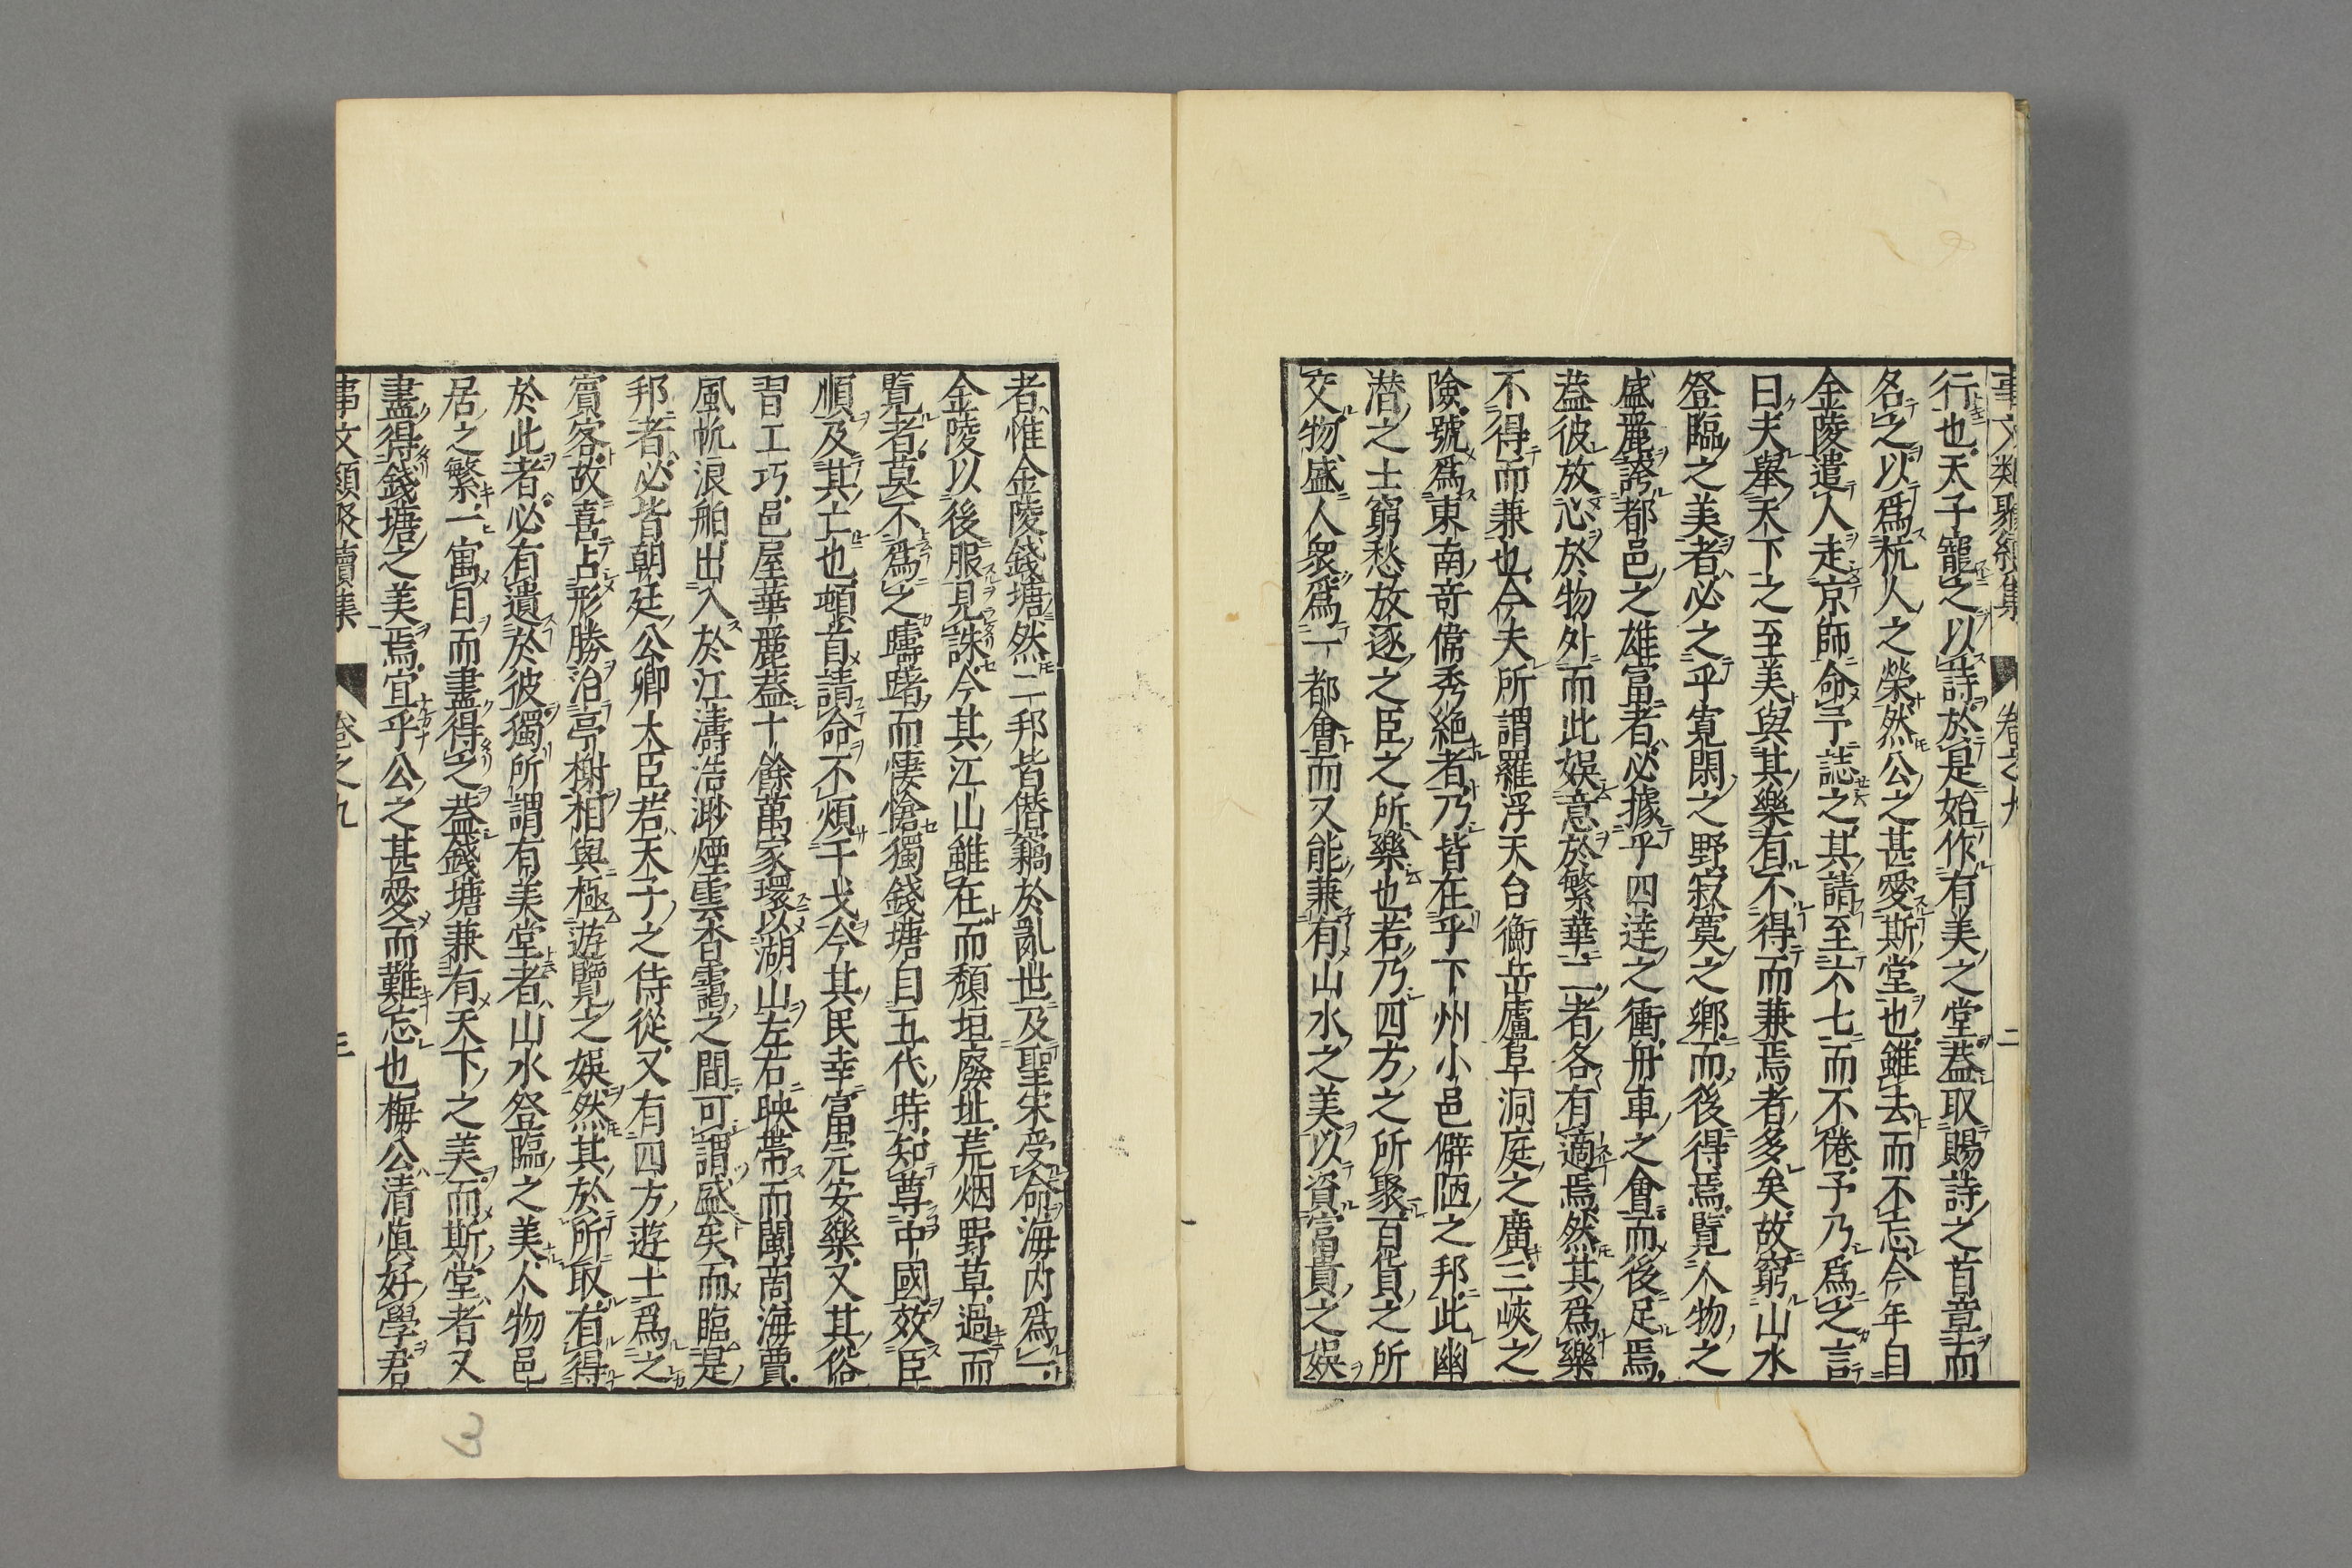 事文類聚續集 卷之九 二
行也太子寵之以詩於是始作有美之堂蓋取賜詩之首章而
名之以爲杭人之榮然公之甚愛斯堂也雖去而不忘今年自
金陵遣人走京師命予誌之其請至六七而不倦予乃爲之言
曰夫舉天下之至美與其樂有不得而兼焉者多矣故窮山水
登臨之美者必之乎寬閑之野寂寞之鄉而後得焉覽人物之
盛麗誇都邑之雄富者必據乎四達之衝舟車之會而後足焉
蓋彼放心於物外而此娛意於繁華二者各有適焉然其爲樂
不得而兼也今夫所謂羅浮天台衡岳廬阜洞庭之廣三峽之
險號爲東南竒偉秀絶者乃皆在乎下州小邑僻陋之邦此幽
潜之士窮愁放逐之臣之所樂也若乃四方之所聚百貨之所
交物盛人衆爲一都會而又能兼有山水之美以資富貴之娛
者惟金陵錢塘然二邦皆僭竊於亂世及聖宋受命海内爲一
金陵以後服見誅今其江山雖在而頽垣廢址荒烟野草過而
覧者莫不爲之躊躇而悽愴獨錢塘自五代時知尊中國效臣
順及其亡也頓首請命不煩干戈今其民幸富完安樂又其俗
習工巧邑屋華麗蓋十餘萬家環以湖山左右映帶而閩商海賈
風帆浪舶出入於江濤浩渺煙雲杳靄之間可謂盛矣而臨是
邦者必皆朝廷公卿大臣若天子之侍從又有四方遊士爲之
賓客故喜占形勝治亭榭相與極遊覽之娛然其於所取有得
於此者必有遺於彼獨所謂有美堂者山水登臨之美人物邑
居之繁一寓目而盡得之蓋錢塘兼有天下之美而斯堂者又
盡得錢塘之美焉宜乎公之甚愛而難忘也梅公清慎好學君
事文類聚續集 卷之九 三